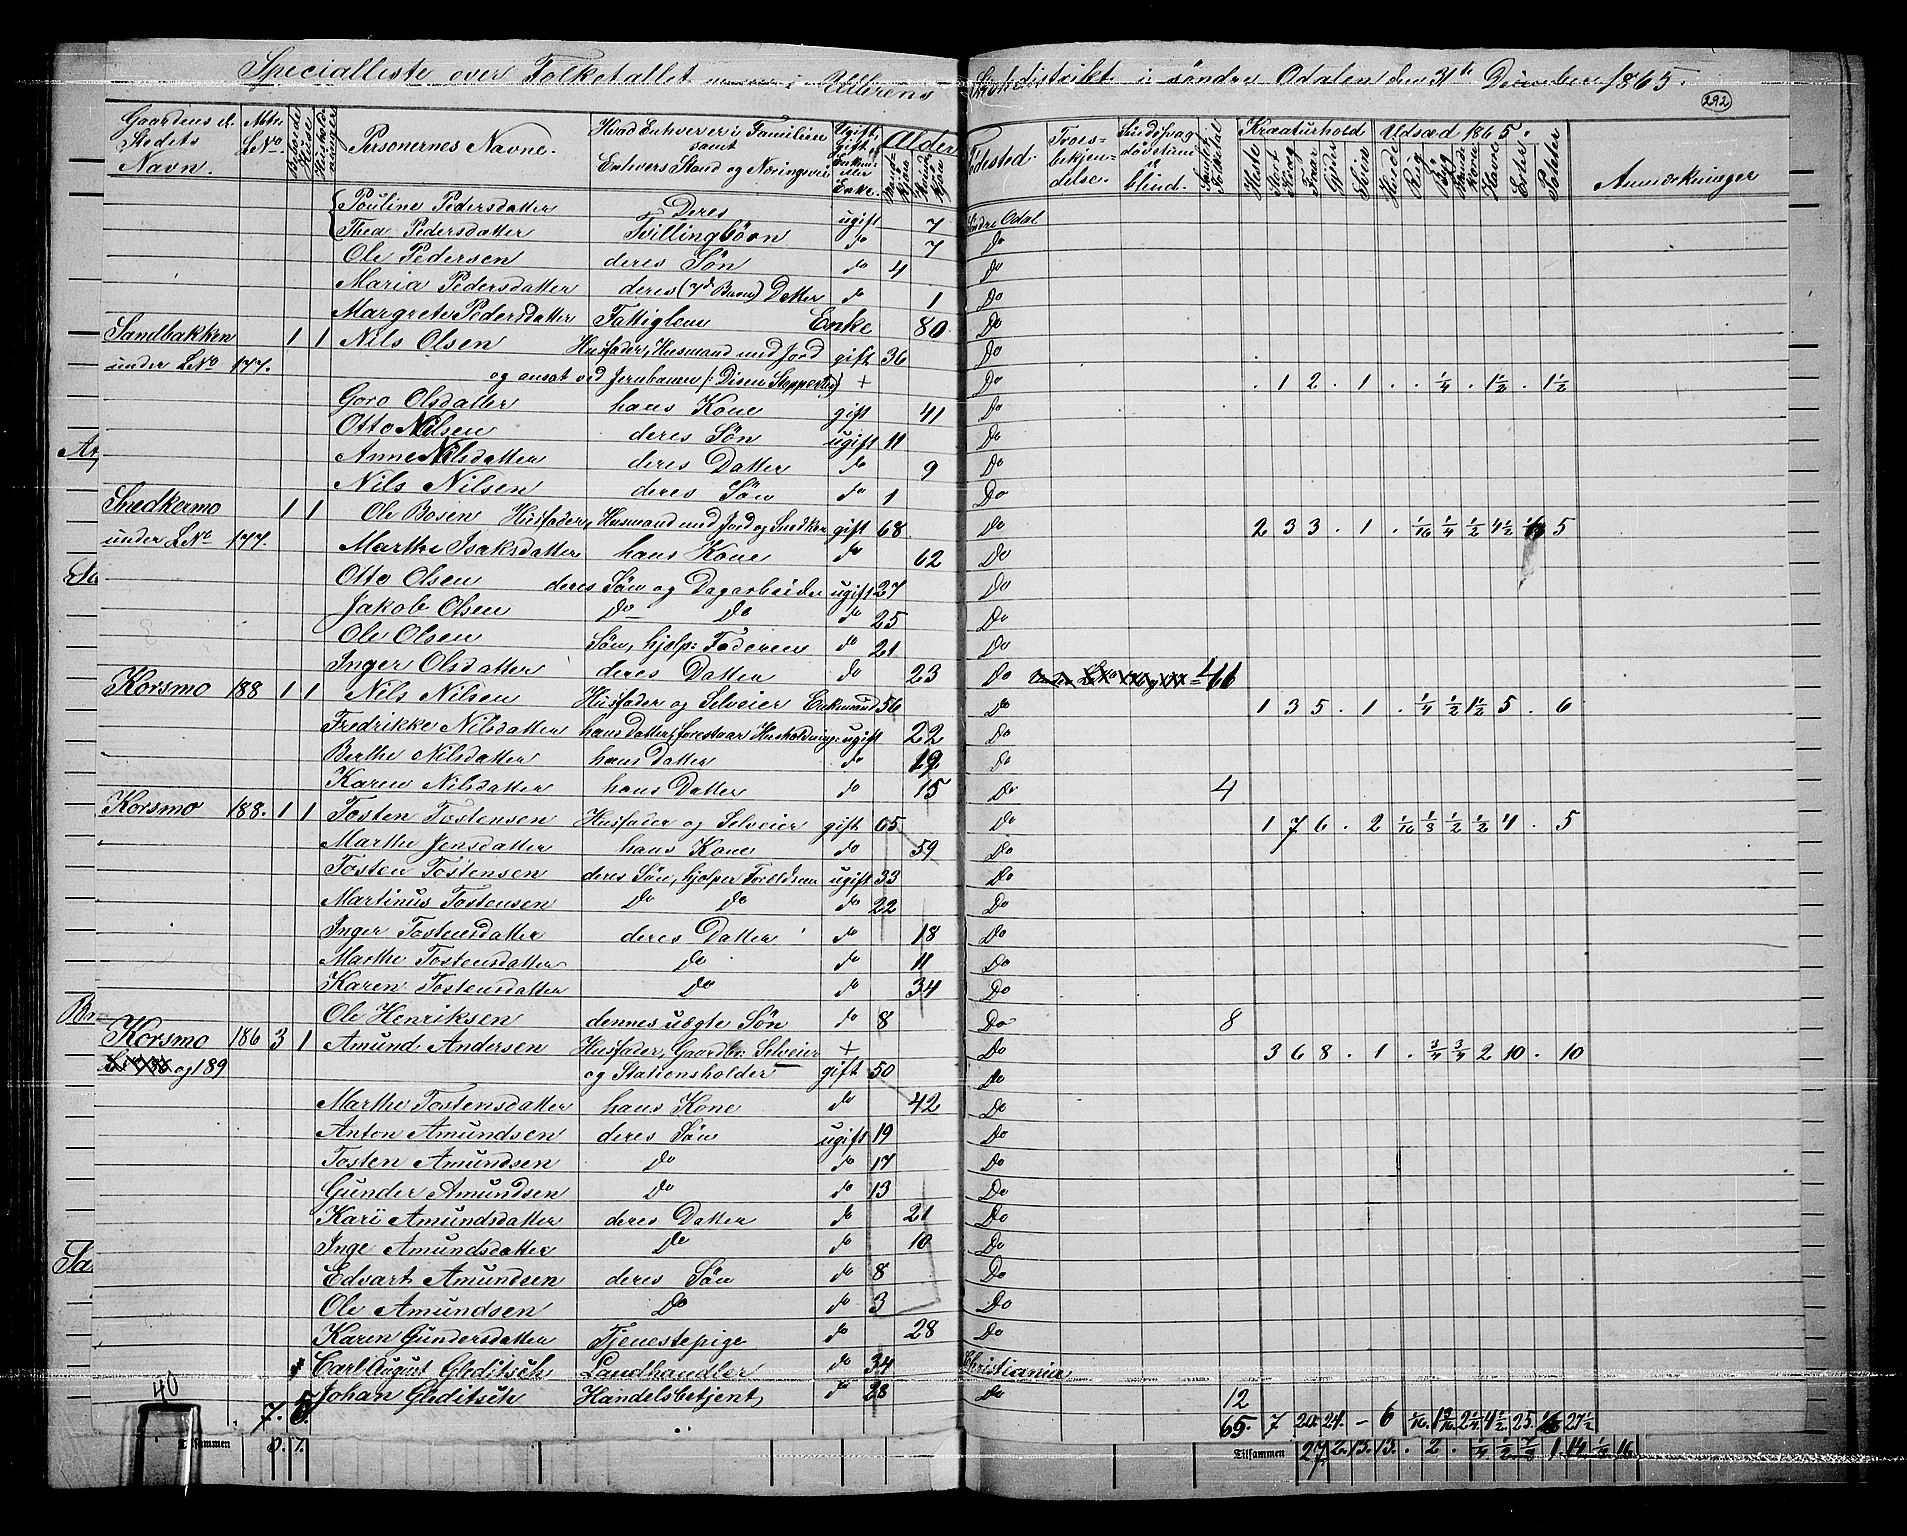 Specialliste over Folketallet i Ullerens Skoledistrikt i söndre Odalen den 31te December 1865.
292
Gaardens el. Stedets Navn. Mtr. L.No. Beboede Huse Personernes Navne. Hvad Enhver er i Familien samt Enhvers Stand og Næringsvei Ugift, Gift, Enkem. eller Enke. Alder Mandkjøn Kvindekjøn Fødested. Troesbekjendelse. Sindssvag dövstum el. blind. Samlet Folketal Kreaturhold Heste Stort Kvæg Faar Gjeder Svin Udsæd 1865. Hvede Rug Byg Blandkorn Havre Erter Poteter Anmærkninger
Pouline Pedersdatter Deres ugift 7 Söndre Odal
Thea Pedersdatter Tvillingbörn do 7 Do
Ole Pedersen deres Søn do 4 Do
Maria Pedersdatter deres (7de Barn) Datter do 1 Do
Margrete Pedersdatter Fattiglem Enke 80 Do
Sandbakken 1 1 Nils Olsen Husfader, Husmand med Jord gift 36 Do
under LNo 177. og ansat ved Jernbanen (: Disen Stoppested) + Do . 1 2 . 1 . . 1/4 . 1 1/2 . 1 1/2
Goro Olsdatter hans Kone gift 41 Do
Otto Nilsen deres Søn ugift 11 Do
Anne Nilsdatter deres Datter do 9 Do
Nils Nilsen deres Søn do 1 Do
Snedkermo 1 1 Ole Bosen Husfader, Husmand med Jord og Snedker gift 68 Do 2 3 3 . 1 . 1/16 1/4 1/2 4 1/2 1/16 5
under LNo 177. Marthe Isaksdatter hans Kone do 62 Do
Otto Olsen deres Søn og Dagarbeider ugift 27 Do
Jakob Olsen Do Do do 25 Do
Ole Olsen Søn, hjelp: Faderen do 21 Do
Inger Olsdatter deres Datter do 23 Do
Korsmo 188 1 1 Nils Nilsen Husfader og Selveier Enkemand 56 Do 1 3 5 . 1 . 1/4 1/2 1 1/2 5 . 6
Fredrikke Nilsdatter hans Datter, forestaar Husholdningen ugift 22 Do
Berthe Nilsdatter hans Datter do 19 Do
Karen Nilsdatter hans Datter do 15 Do 4
Korsmo 188. 1 1 Tosten Tostensen Husfader og Selveier gift 65 Do 1 7 6 . 2 1/16 1/8 1/2 1/2 4 . 5
Marthe Jensdatter hans Kone do 59 Do
Tosten Tostensen deres Søn, hjelper Forældrene ugift 33 Do
Martinus Tostensen Do Do do 22 Do
Inger Tostensdatter deres Datter do 18 Do
Marthe Tostensdatter Do do 11 Do
Karen Tostensdatter Do do 34 Do
Ole Henriksen dennes uægte Søn do 8 Do 8
Korsmo 186 3 1 Amund Andersen Husfader, Gaardbr: Selveier + Do 3 6 8 . 1 . 3/4 3/4 2 10 . 10
og 189 og Stationsholder gift 50 Do
Marthe Tostensdatter hans Kone do 42 Do
Anton Amundsen deres Søn ugift 19 Do
Tosten Amundsen Do do 17 Do
Gunder Amundsen Do do 13 Do
Kari Amundsdatter deres Datter do 21 Do
Inge Amundsdatter Do do 10 Do
Edvart Amundsen deres Søn do 8 Do
Ole Amundsen Do do 3 Do
Karen Gundersdatter Tjenestepige do 28 Do
Carl August Gleditsch Landhandler do 34 Christiania
Johan Gleditsch Handelsbetjent do 28 Do 12
40
7. 5. 65. 7 20. 24. – 6
Tilsammen
Tilsammen 27